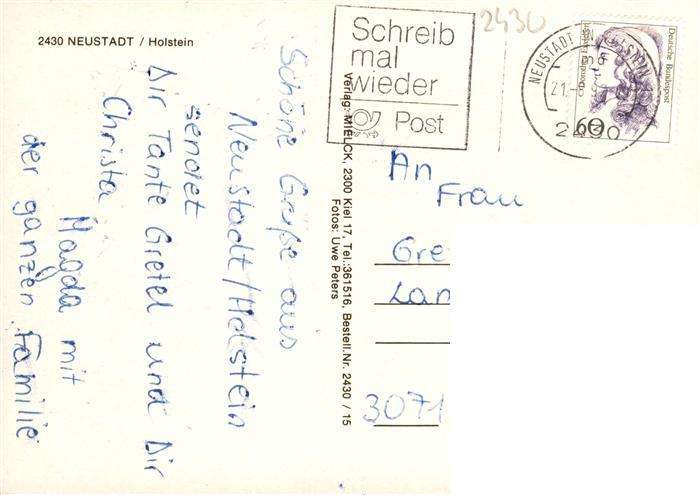 2430 NEUSTADT / Holstein
Schöne Grüße aus
Neustadt/Holstein
sendet
Dir Tante Gretel und Dir
Christa
Magda mit
der ganzen Familie
Verlag: MIELCK, 2300 Kiel 17, Tel.:361516, Bestell.Nr. 2430 / 15
Fotos: Uwe Peters
Schreib
mal
wieder
Post
2430
NEUSTADT
21.
2430
60
Deutsche Bundespost
An
Frau
Gre
Lan
3071